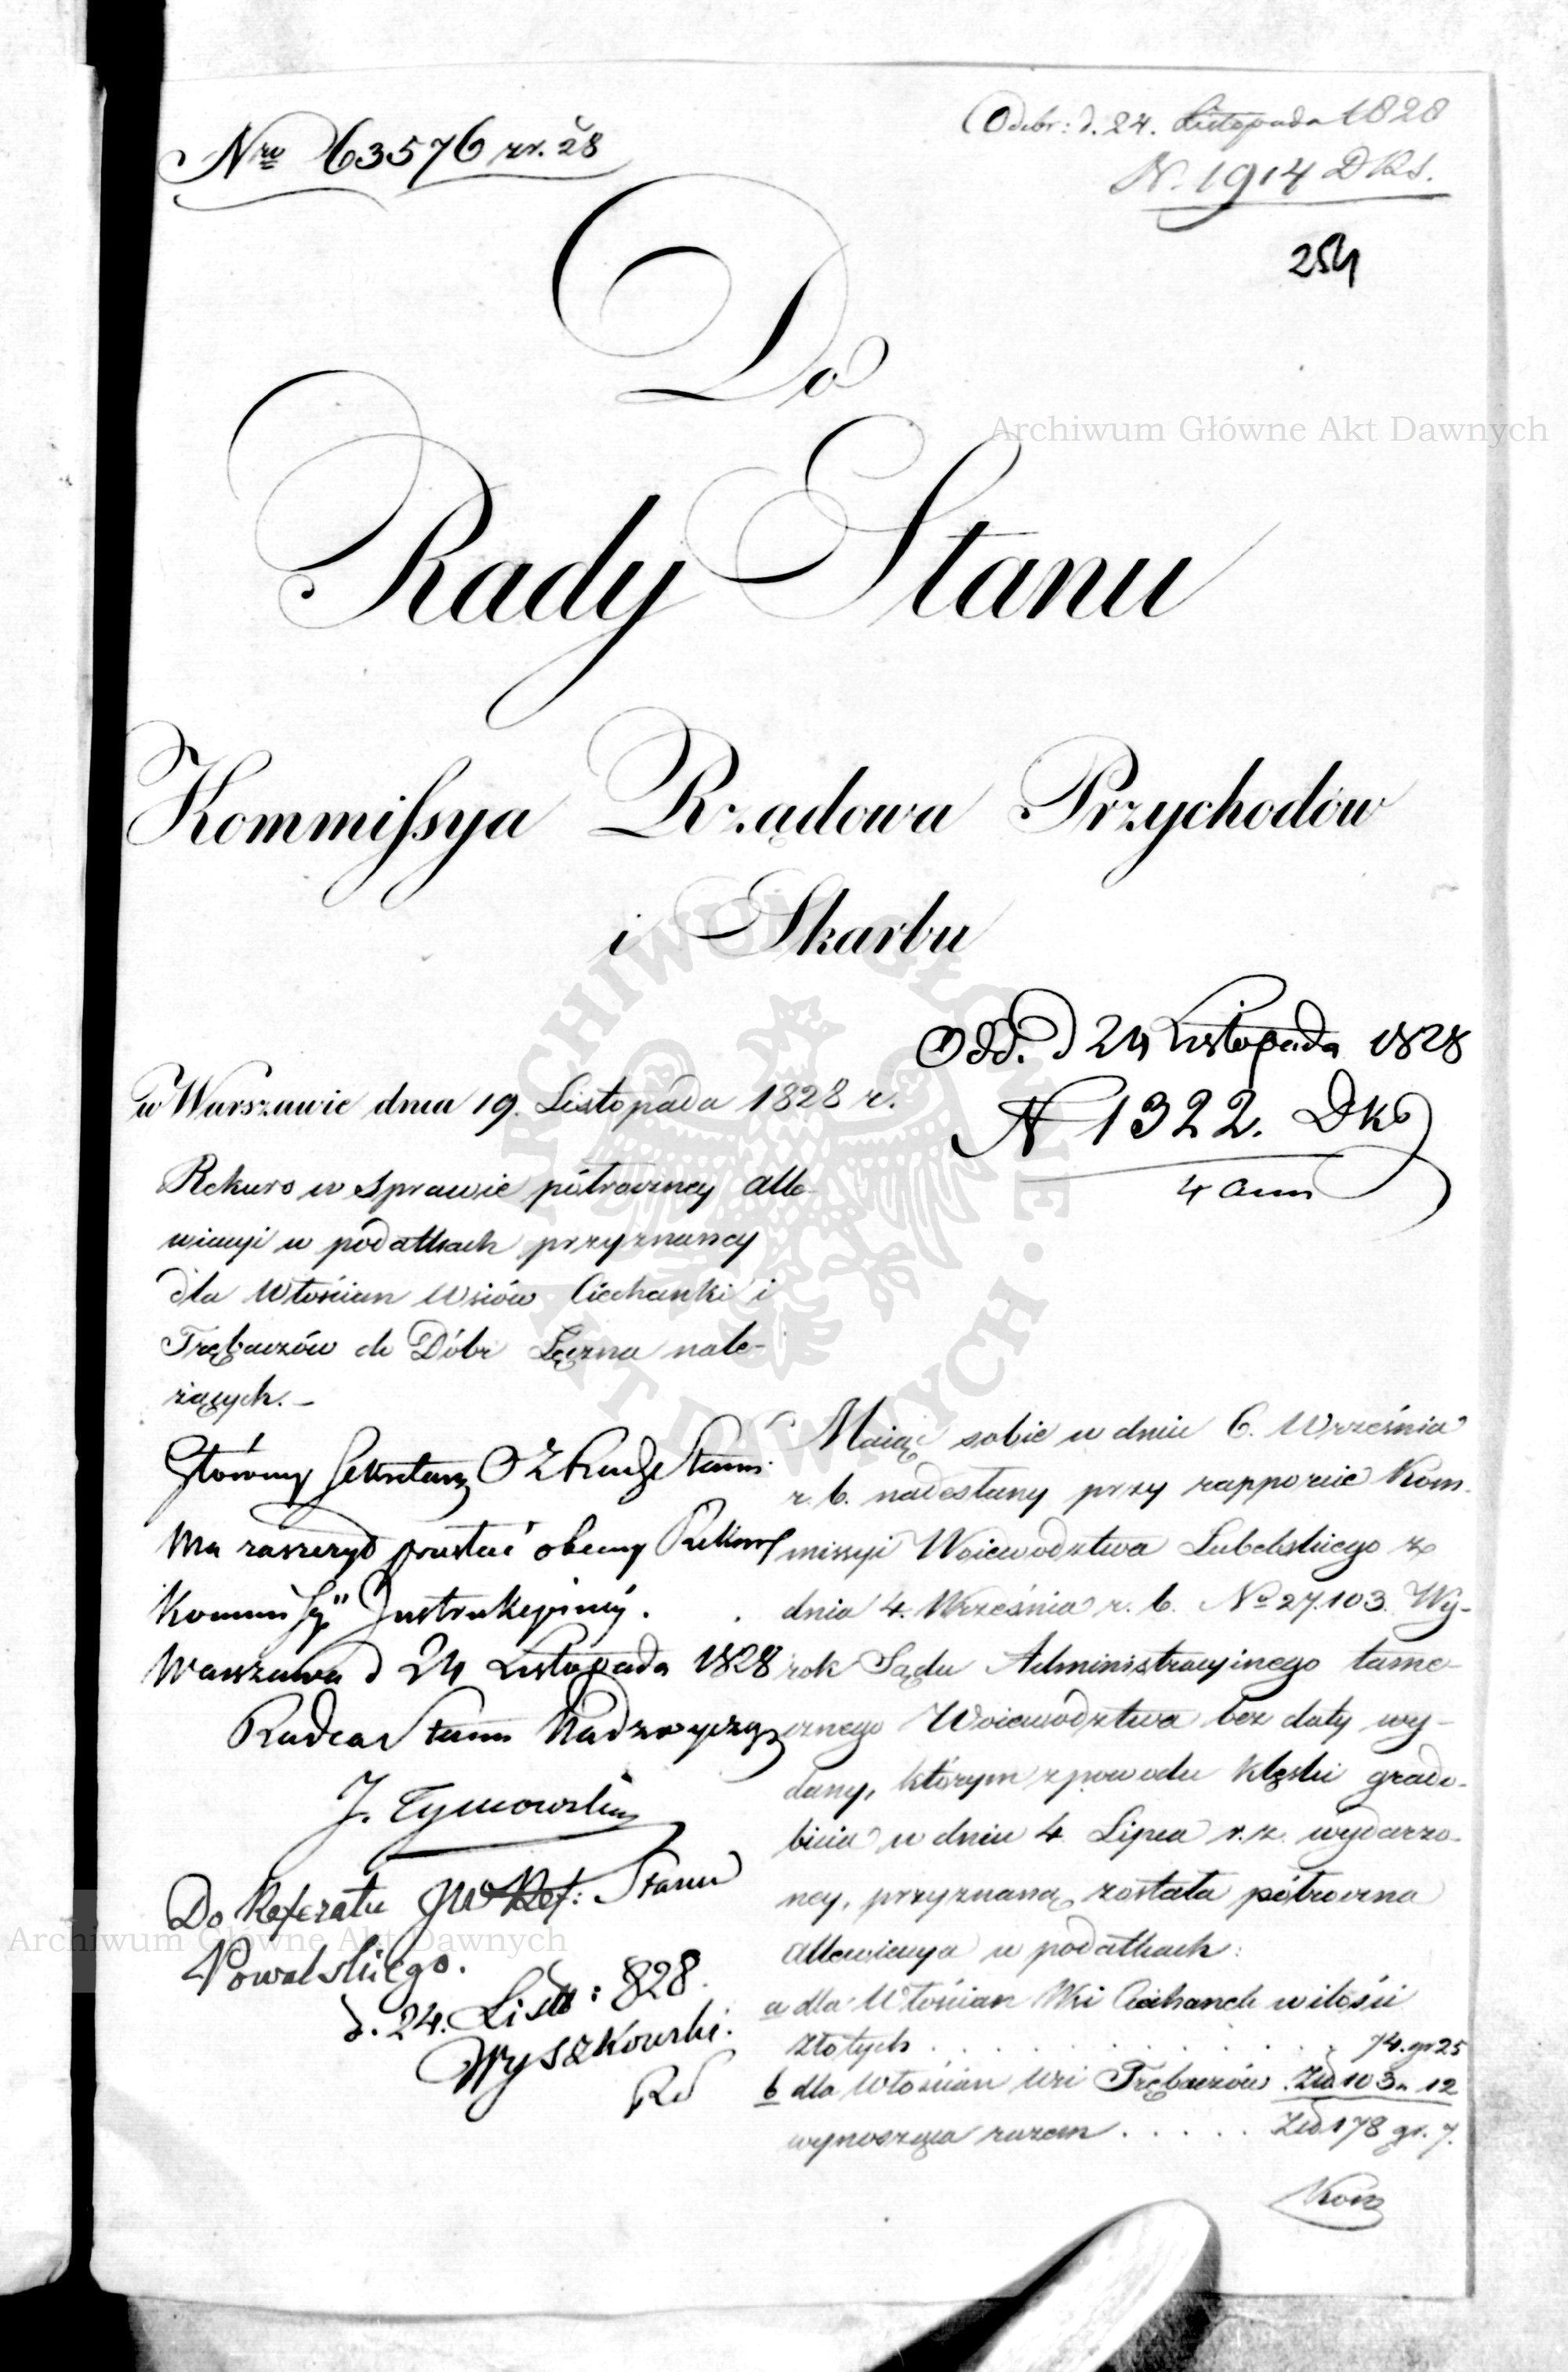 Nro 63576 rr. 28
Odebr: d. 24. Listopada 1828
N. 1914 DKS.
254
Do
Rady Stanu
Kommissya Rządowa Przychodów
i Skarbu
Odd. d 24 Listopada 1828
N 1322. Dks
w Warszawie dnia 19. Listopada 1828 r.
Rekurs w sprawie półroczney alle-
wiacyi w podatkach przyznaney
dla Włościan Wsiów Ciechanki i
Trębaczów do Dóbr Łęczna nale-
żących. -
Główny Sekretarz
Ma zaszczyd przesłać obecny Rekurs
Kommissyi Instrukcyiney.
Warszawa d 24 Listopada 1828
Radca Stanu Nadzwyczay
J. Tymowski
Do Referatu JW Ref: Stanu
Powalskiego.
d. 24. List: 828.
Wyszkowski.
RS
Maiąc sobie w dniu 6. Września
r. b. nadesłany przy rapporcie Kom-
missyi Woiewodztwa Lubelskiego z
dnia 4. Września r. b. No 27.103. Wy-
rok Sądu Administracyinego tame-
cznego Woiewodztwa bez daty wy-
dany, którym z powodu klęski grado-
bicia w dniu 4 Lipca r. z. wydarzo-
ney, przyznaną została półroczna
allewiacya w podatkach:
a dla Włościan Wsi Ciechanek w ilości
złotych . . . . . . . . . 74. gr 25
b dla Włościan Wsi Trębaczów. Złp 103 " 12
wynosząca razem . . . . . Złp 178 gr. 7.
Archiwum Główne Akt Dawnych
Archiwum Główne Akt Dawnych
ARCHIWUM GŁÓWNE AKT DAWNYCH